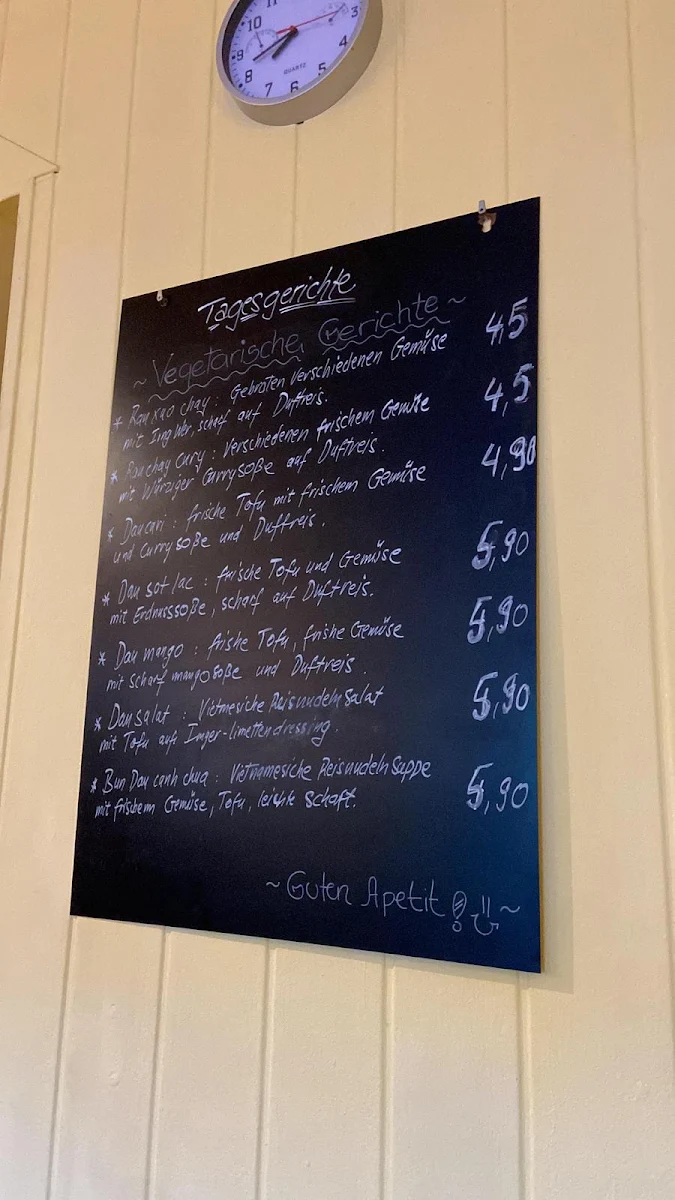 11
10
9
8
7
6
5
4
3
QUARTZ
Tagesgerichte
~ Vegetarische Gerichte ~
* Rau xao chay : Gebraten verschiedenen Gemüse 4,5
mit Ingwer, scharf auf Duftreis.
* Rau chay Cury : Verschiedenen frischem Gemüse 4,5
mit Würziger Currysoße auf Duftreis.
* Dau cari : frische Tofu mit frischem Gemüse 4,90
und Curry soße und Duftreis.
* Dau sot lac : frische Tofu und Gemüse 5,90
mit Erdnusssoße, scharf auf Duftreis.
* Dau mango : frishe Tofu, frishe Gemüse 5,90
mit scharf mangosoße und Duftreis.
* Dau salat : Vietmesiche Reisnudeln Salat 5,90
mit Tofu auf Imger-limettendressing.
* Bun Dau canh chua : Vietnamesiche Reisnudeln Suppe 5,90
mit frishem Gemüse, Tofu, leichte Schaft.
~ Guten Apetit ! ~